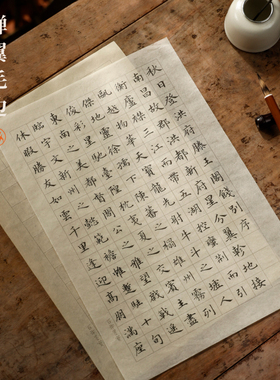 蝉翼毛边
秋日登洪府滕王閣餞別序
南昌故郡洪都新府星分翼軫地接
衡廬襟三江而帶五湖控蠻荊而引
甌越物華天寶龍光射牛斗之墟人
傑地靈徐孺下陳蕃之榻雄州霧列
俊彩星馳臺隍枕夷夏之交賓主盡
東南之美都督閻公之雅望棨戟遙
臨宇文新州之懿範襜帷暫駐十旬
休暇勝友如雲千里逢迎高朋滿座